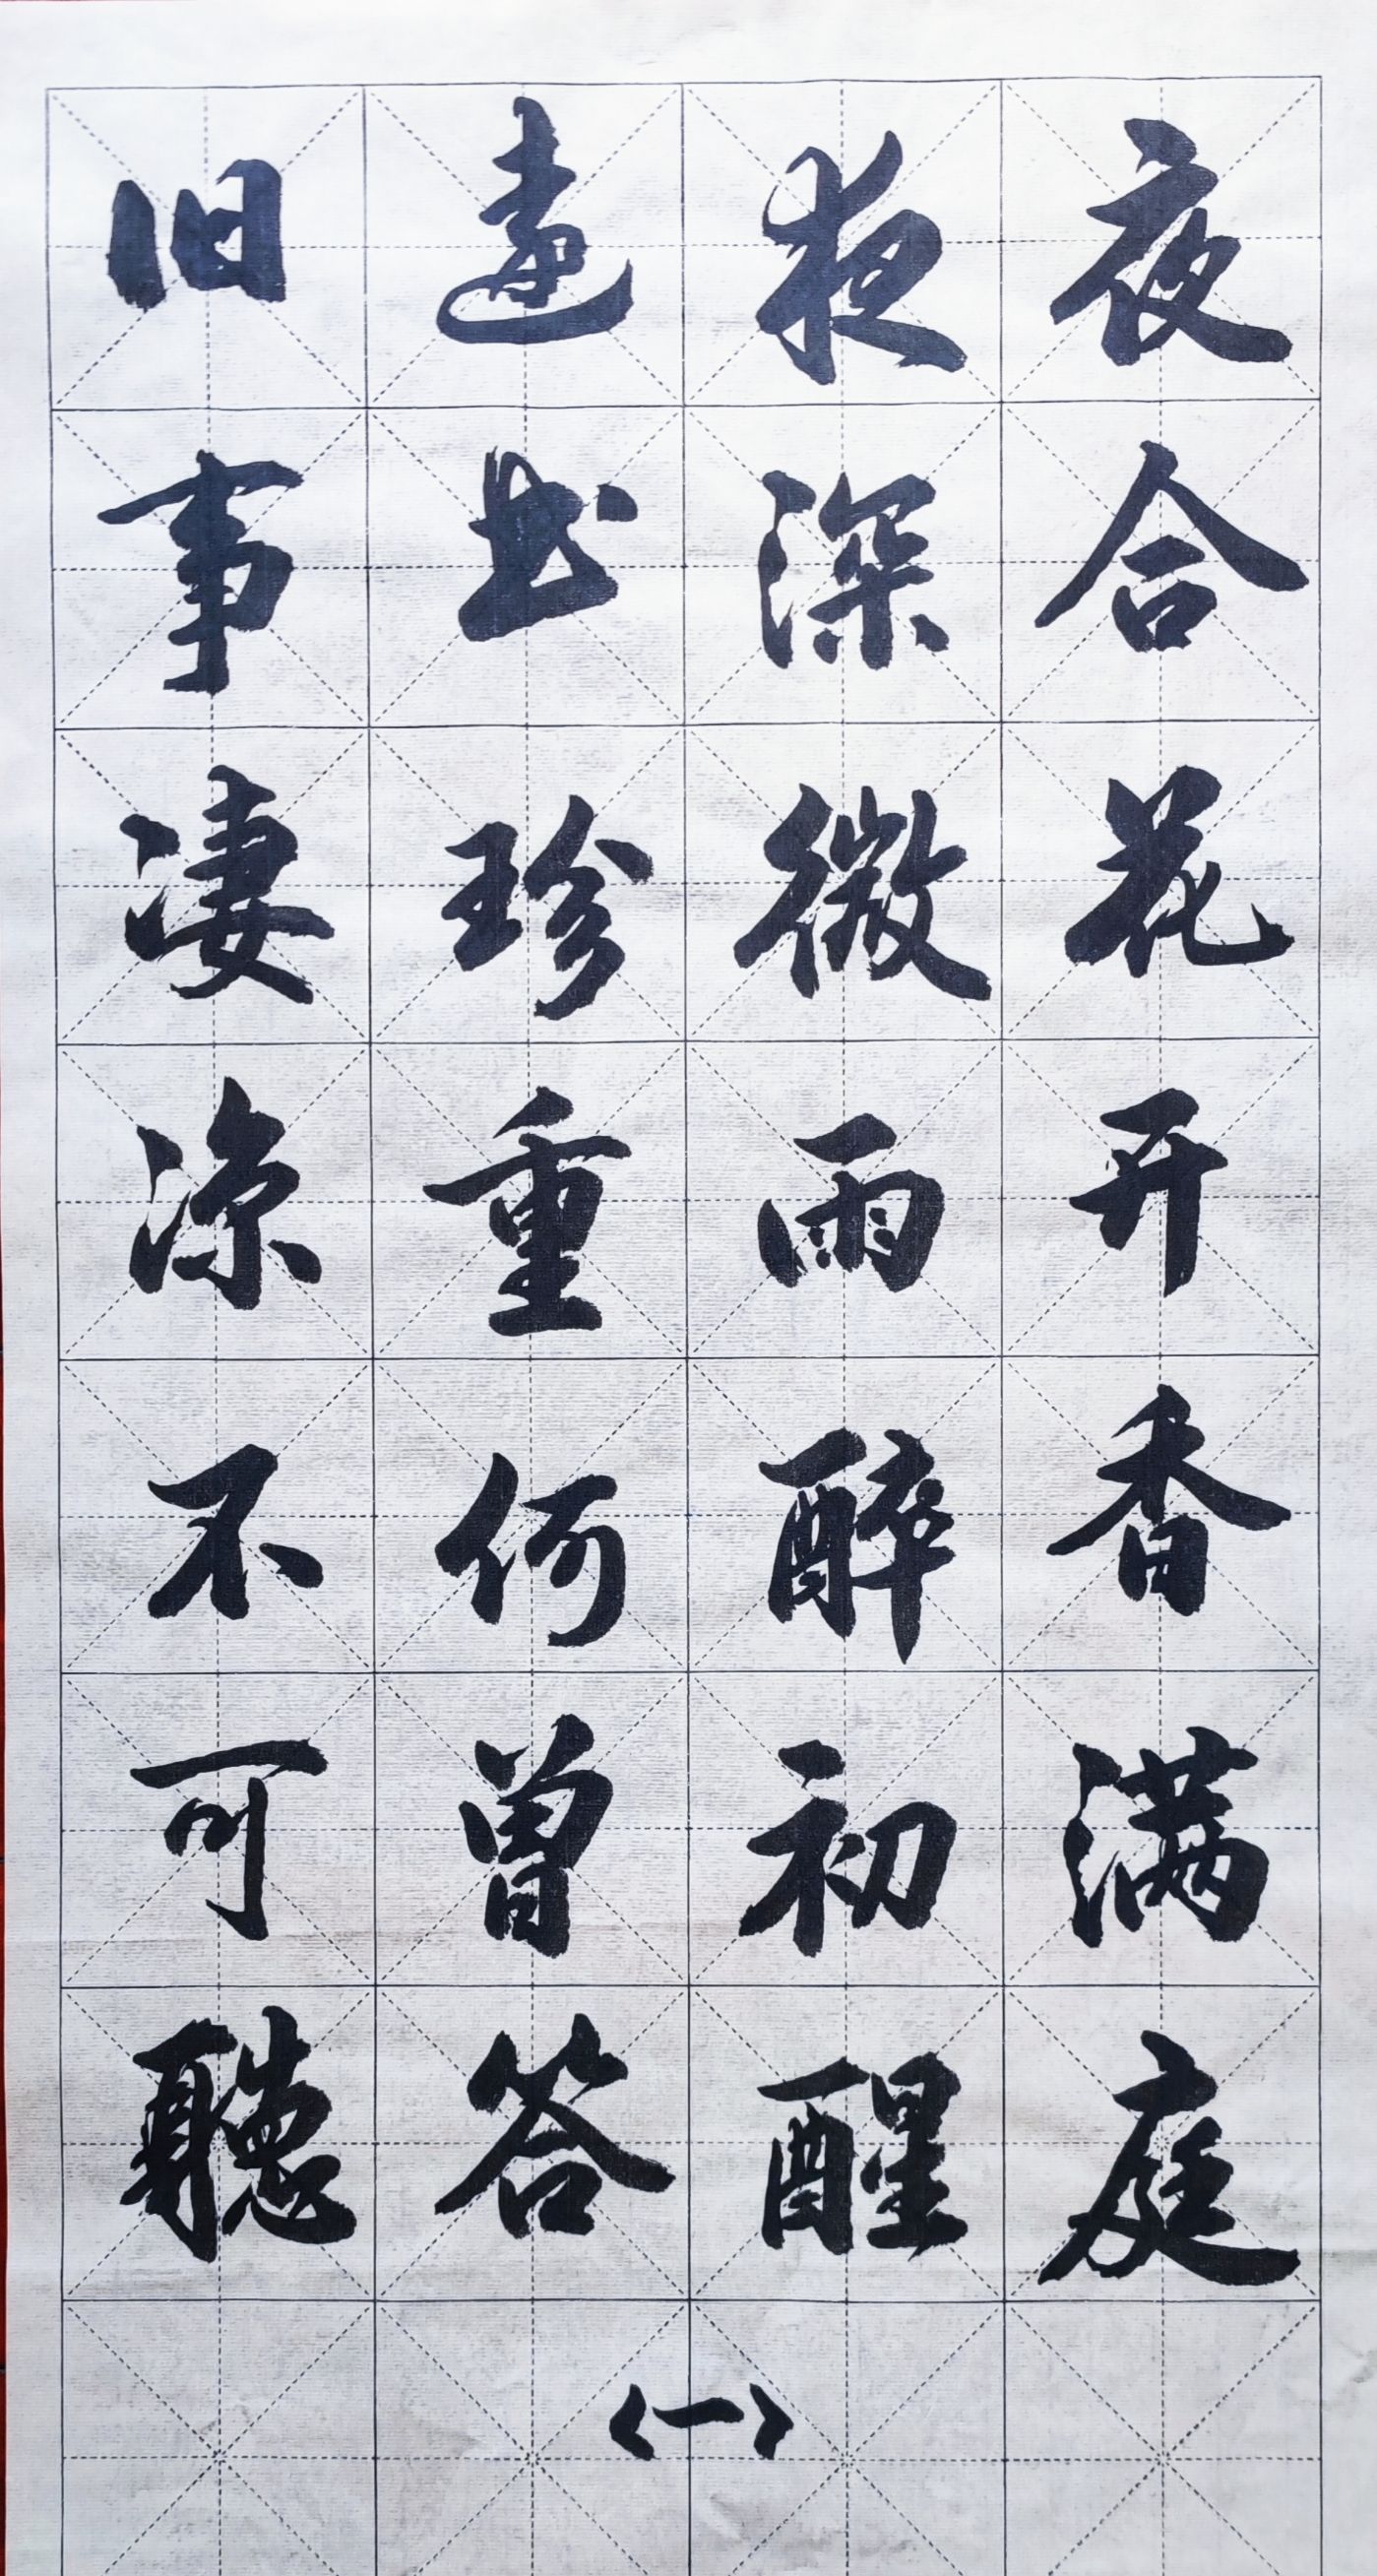 夜合花开香满庭
夜深微雨醉初醒
远书珍重何曾答
旧事凄凉不可聽
〈一〉